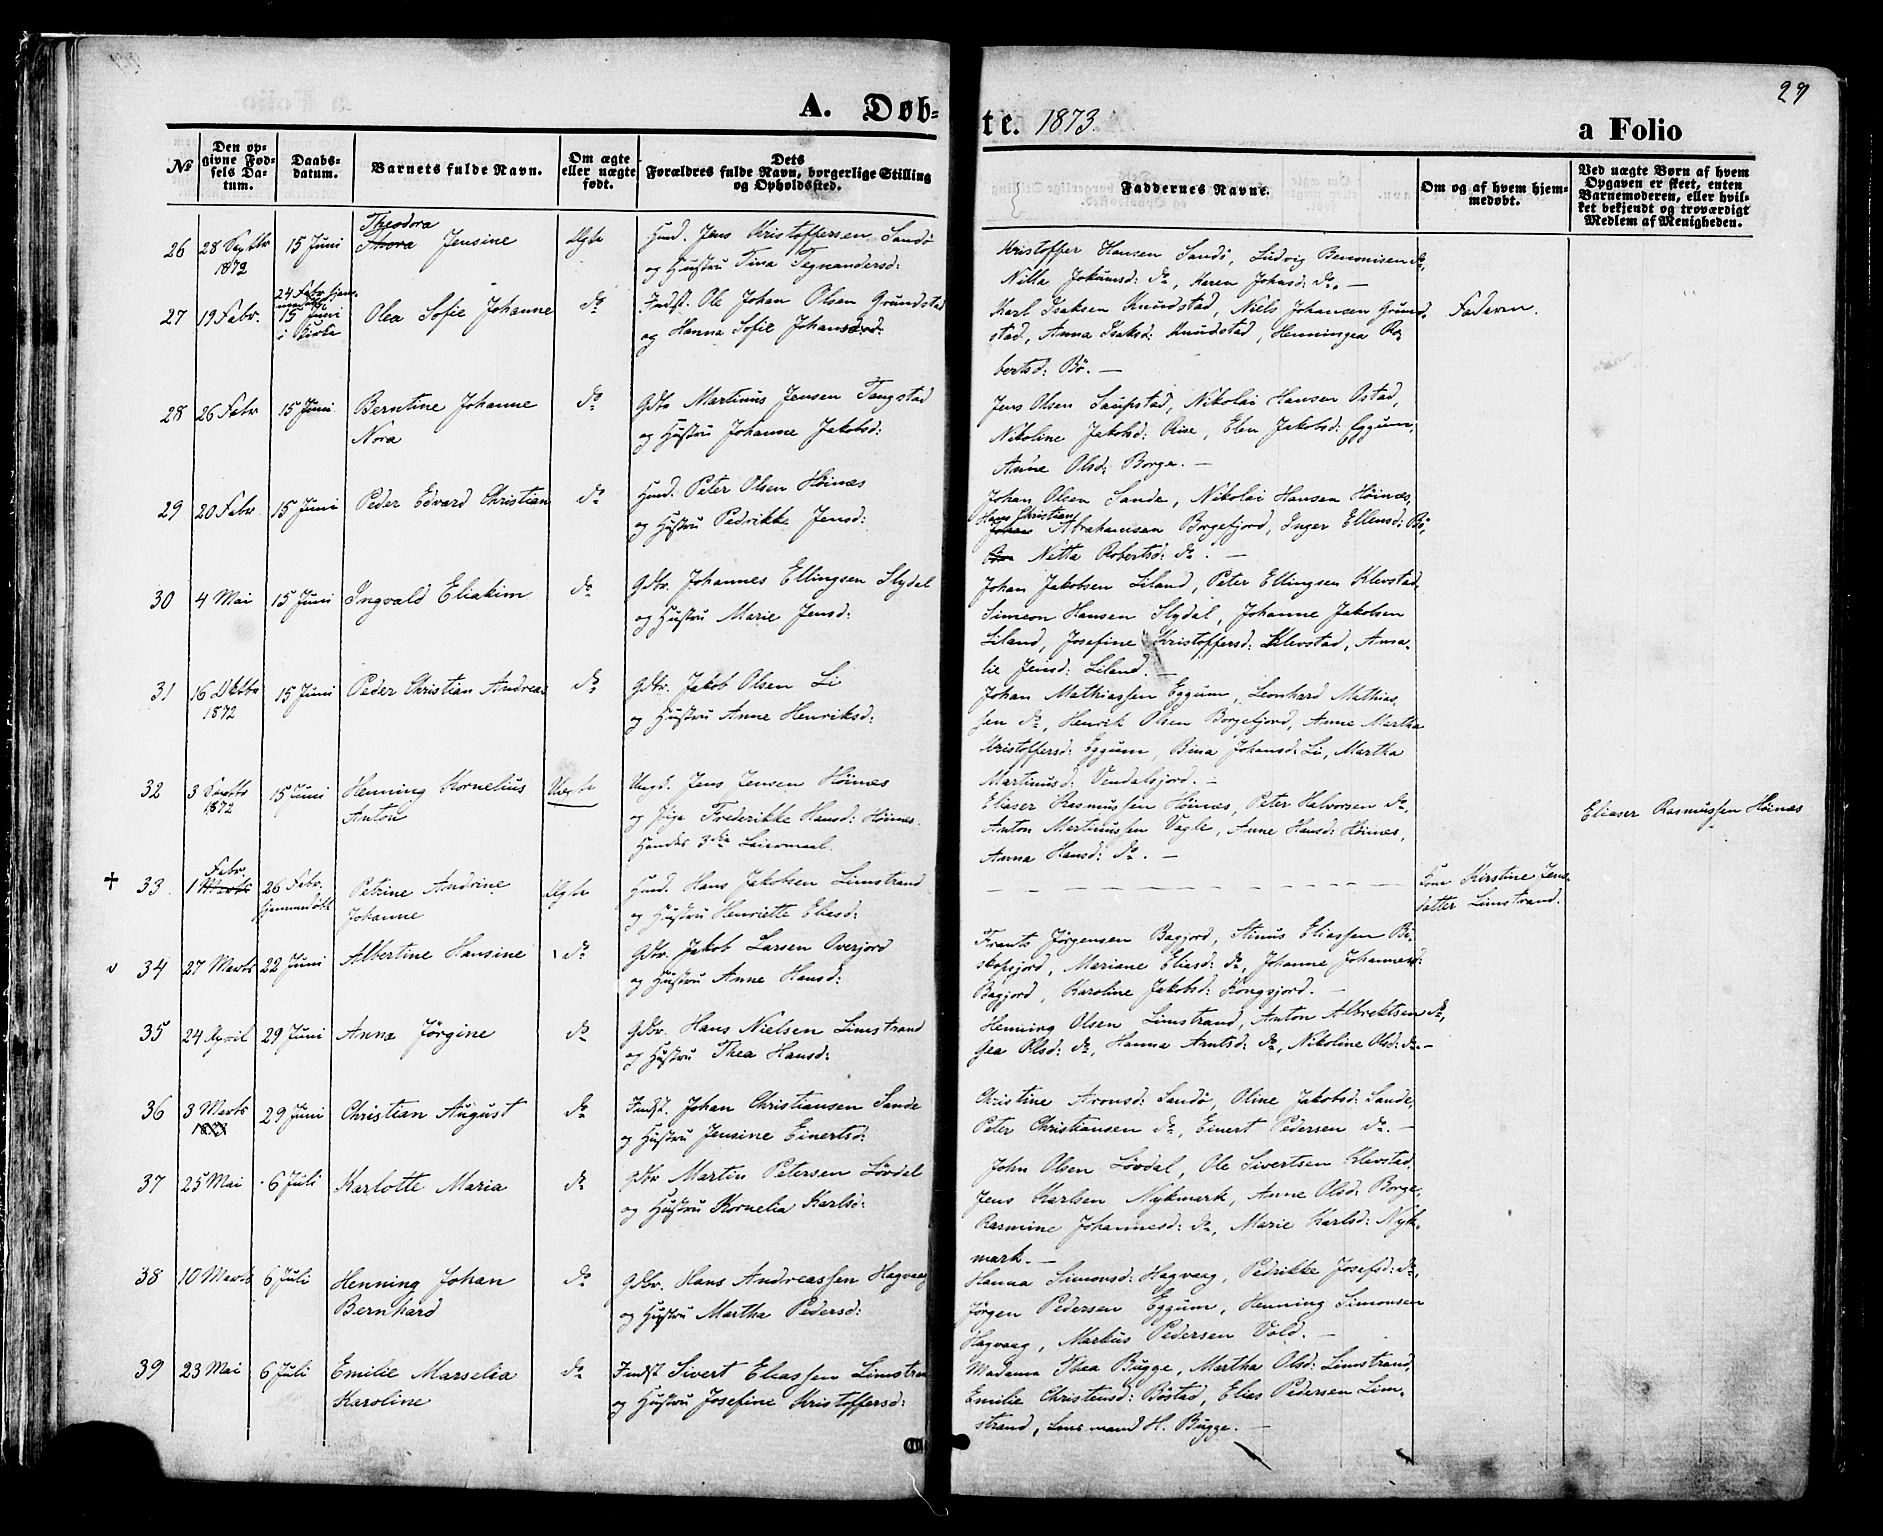 A. Døb-
te. 1873.
a Folio
29
№
Den op-
givne Fød-
sels Da-
tum.
Daabs-
datum.
Barnets fulde Navn.
Om ægte
eller uægte
født.
Dets
Forældres fulde Navn, borgerlige Stilling
og Opholdssted.
Faddernes Navne.
Om og af hvem hjem-
medøbt.
Ved uægte Børn af hvem
Opgaven er skeet, enten
Barnemoderen, eller hvil-
ket bekjendt og troværdigt
Medlem af Menigheden.
26 28 Septbr 1872 15 Juni Theodora
Thora Jensine Ægte
Husd. Jens Kristoffersen Sandö
og Hustru Tina Tegnandersd:
Kristoffer Hansen Sandö, Ludvig Benonisen do,
Nilla Jokumsd: do, Karen Johnsd: do. —
27 19 Febr. 24 Febr. hjem-
15 Juni
i Kirke
Olea Sofie Johanne do
Indst. Ole Johan Olsen Grundstad
og Hanna Sofie Johansd:
Karl Isaksen Knudstad, Niels Johansen Grund-
stad, Anna Isaksd: Knudstad, Henningea Ro-
bertsd: Bö. —
Faderen.
28 26 Febr 15 Juni Berntine Johanne
Nora do
Gdbr Martinus Jensen Tangstad
og Hustru Johanne Jakobsd:
Jens Olsen Saupstad, Nikolai Hansen Ostad,
Nikoline Jakobsd: Rise, Elen Jakobsd: Eggum,
Anne Olsd: Borge. —
29 20 Febr 15 Juni Peder Edvard Christian do
Husd. Peter Olsen Höinæs
og Hustru Pedrikke Jensd:
Johan Olsen Sande, Nikolai Hansen Höinæs,
Hans Christian
Johan Abrahamsen Borgefjord, Inger Ellensd: Bö,
Netta Robertsd: do. —
30 4 Mai 15 Juni Ingvald Eliakim do
Gdbr. Johannes Ellingsen Slydal
og Hustru Marie Jensd:
Johan Jakobsen Liland, Peter Ellingsen Klevstad,
Simeon Hansen Slydal, Johanne Jakobsen
Liland, Josefine Kristoffersd: Klevstad, Ama-
lie Jensd: Liland. —
31 16 Oktbr 1872 15 Juni Peder Christian Andreas do
Gdbr. Jakob Olsen Li
og Hustru Anne Henriksd:
Johan Mathiassen Eggum, Leonhard Mathias-
sen do, Henrik Olsen Borgefjord, Anne Martha
Kristoffersd: Eggum, Bina Johansd: Li, Martha
Martinusd: Vendalsjord. —
32 3 1872 15 Juni Henning Kornelius
Anton Uægte
Ungk. Jens Jensen Höinæs
og Pige Frederikke Hansd: Höinæs.
Hendes 3die Leiermaal.
Eliaser Rasmussen Höinæs, Peter Halvorsen do,
Anton Martinussen Vagle, Anne Hansd: Höinæs,
Anna Hansd: do. —
Eliaser Rasmussen Höinæs
✝ 33. 1 Febr.
Marts 26 Febr.
hjemmedöbt Petrine Andrine
Johanne Ægte
Husd. Hans Jakobsen Limstrand
og Hustru Henriette Eliasd:
Kirstine Jens-
datter Limstrand.
v 34 27 Marts 22 Juni Albertine Hansine do
Gdbr. Jakob Larsen Overjord
og Hustru Anne Hansd:
Frants Jörgensen Bagjord, Stinus Eliassen Bi-
skopsjord, Mariane Eliasd: do, Johanne Johannesd:
Bagjord, Karoline Jakobsd: Kongsjord. —
35 24 April 29 Juni Anna Jörgine do
Gdbr. Hans Nielsen Limstrand
og Hustru Thea Hansd:
Henning Olsen Limstrand, Anton Albrektsen do,
Gea Olsd: do, Hanna Arntsd: do, Nikoline Olsd: do. —
36 3 Marts 29 Juni Christian August do
Indst. Johan Christiansen Sande
og Hustru Jensine Einertsd:
Christine Aronsd: Sandö, Oline Jakobsd: Sande,
Peter Christiansen do, Einert Pedersen do. —
37 25 Mai 6 Juli Karlotte Maria do
Gdbr Martin Petersen Lövdal
og Hustru Kornelia Karlsd:
John Olsen Lövdal, Ole Sivertsen Klevstad,
Jens Karlsen Nykmark, Anne Olsd: Borge,
Rasmine Johannesd: do, Marie Karlsd: Nyk-
mark. —
38 10 Marts 6 Juli Henning Johan
Bernhard do
Gdbr. Hans Andreassen Hagvaag
og Hustru Martha Pedersd:
Hanna Simonsd: Hagvaag, Pedrikke Josefsd: do,
Jörgen Pedersen Eggum, Henning Simonsen
Hagvaag, Markus Pedersen Vold. —
39 23 Mai 6 Juli Emilie Marselia
Karoline do
Indst Sivert Eliassen Limstran
og Hustru Josefine Kristoffersd:
Madama Thea Bugge, Martha Olsd: Limstrand,
Emilie Christensd: Böstad, Elias Pedersen Lim-
strand, Lensmand H. Bugge. —